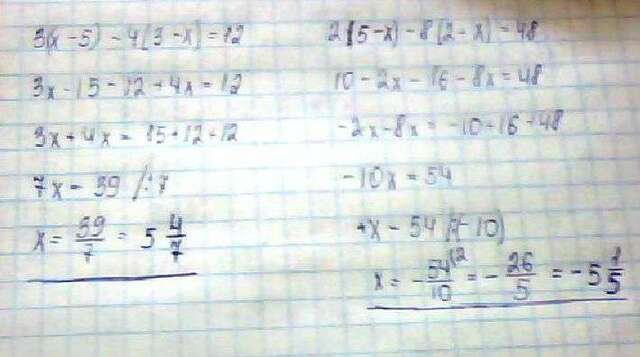 3(x-5) - 4(3-x) = 12
3x - 15 - 12 + 4x = 12
3x + 4x = 15 + 12 + 12
7x = 39 /:7
x = 39/7 = 5 4/7
2(5-x) - 8(2-x) = 48
10 - 2x - 16 - 8x = 48
-2x - 8x = -10 + 16 + 48
-10x = 54
x = -54/10 = -26/5 = -5 1/5